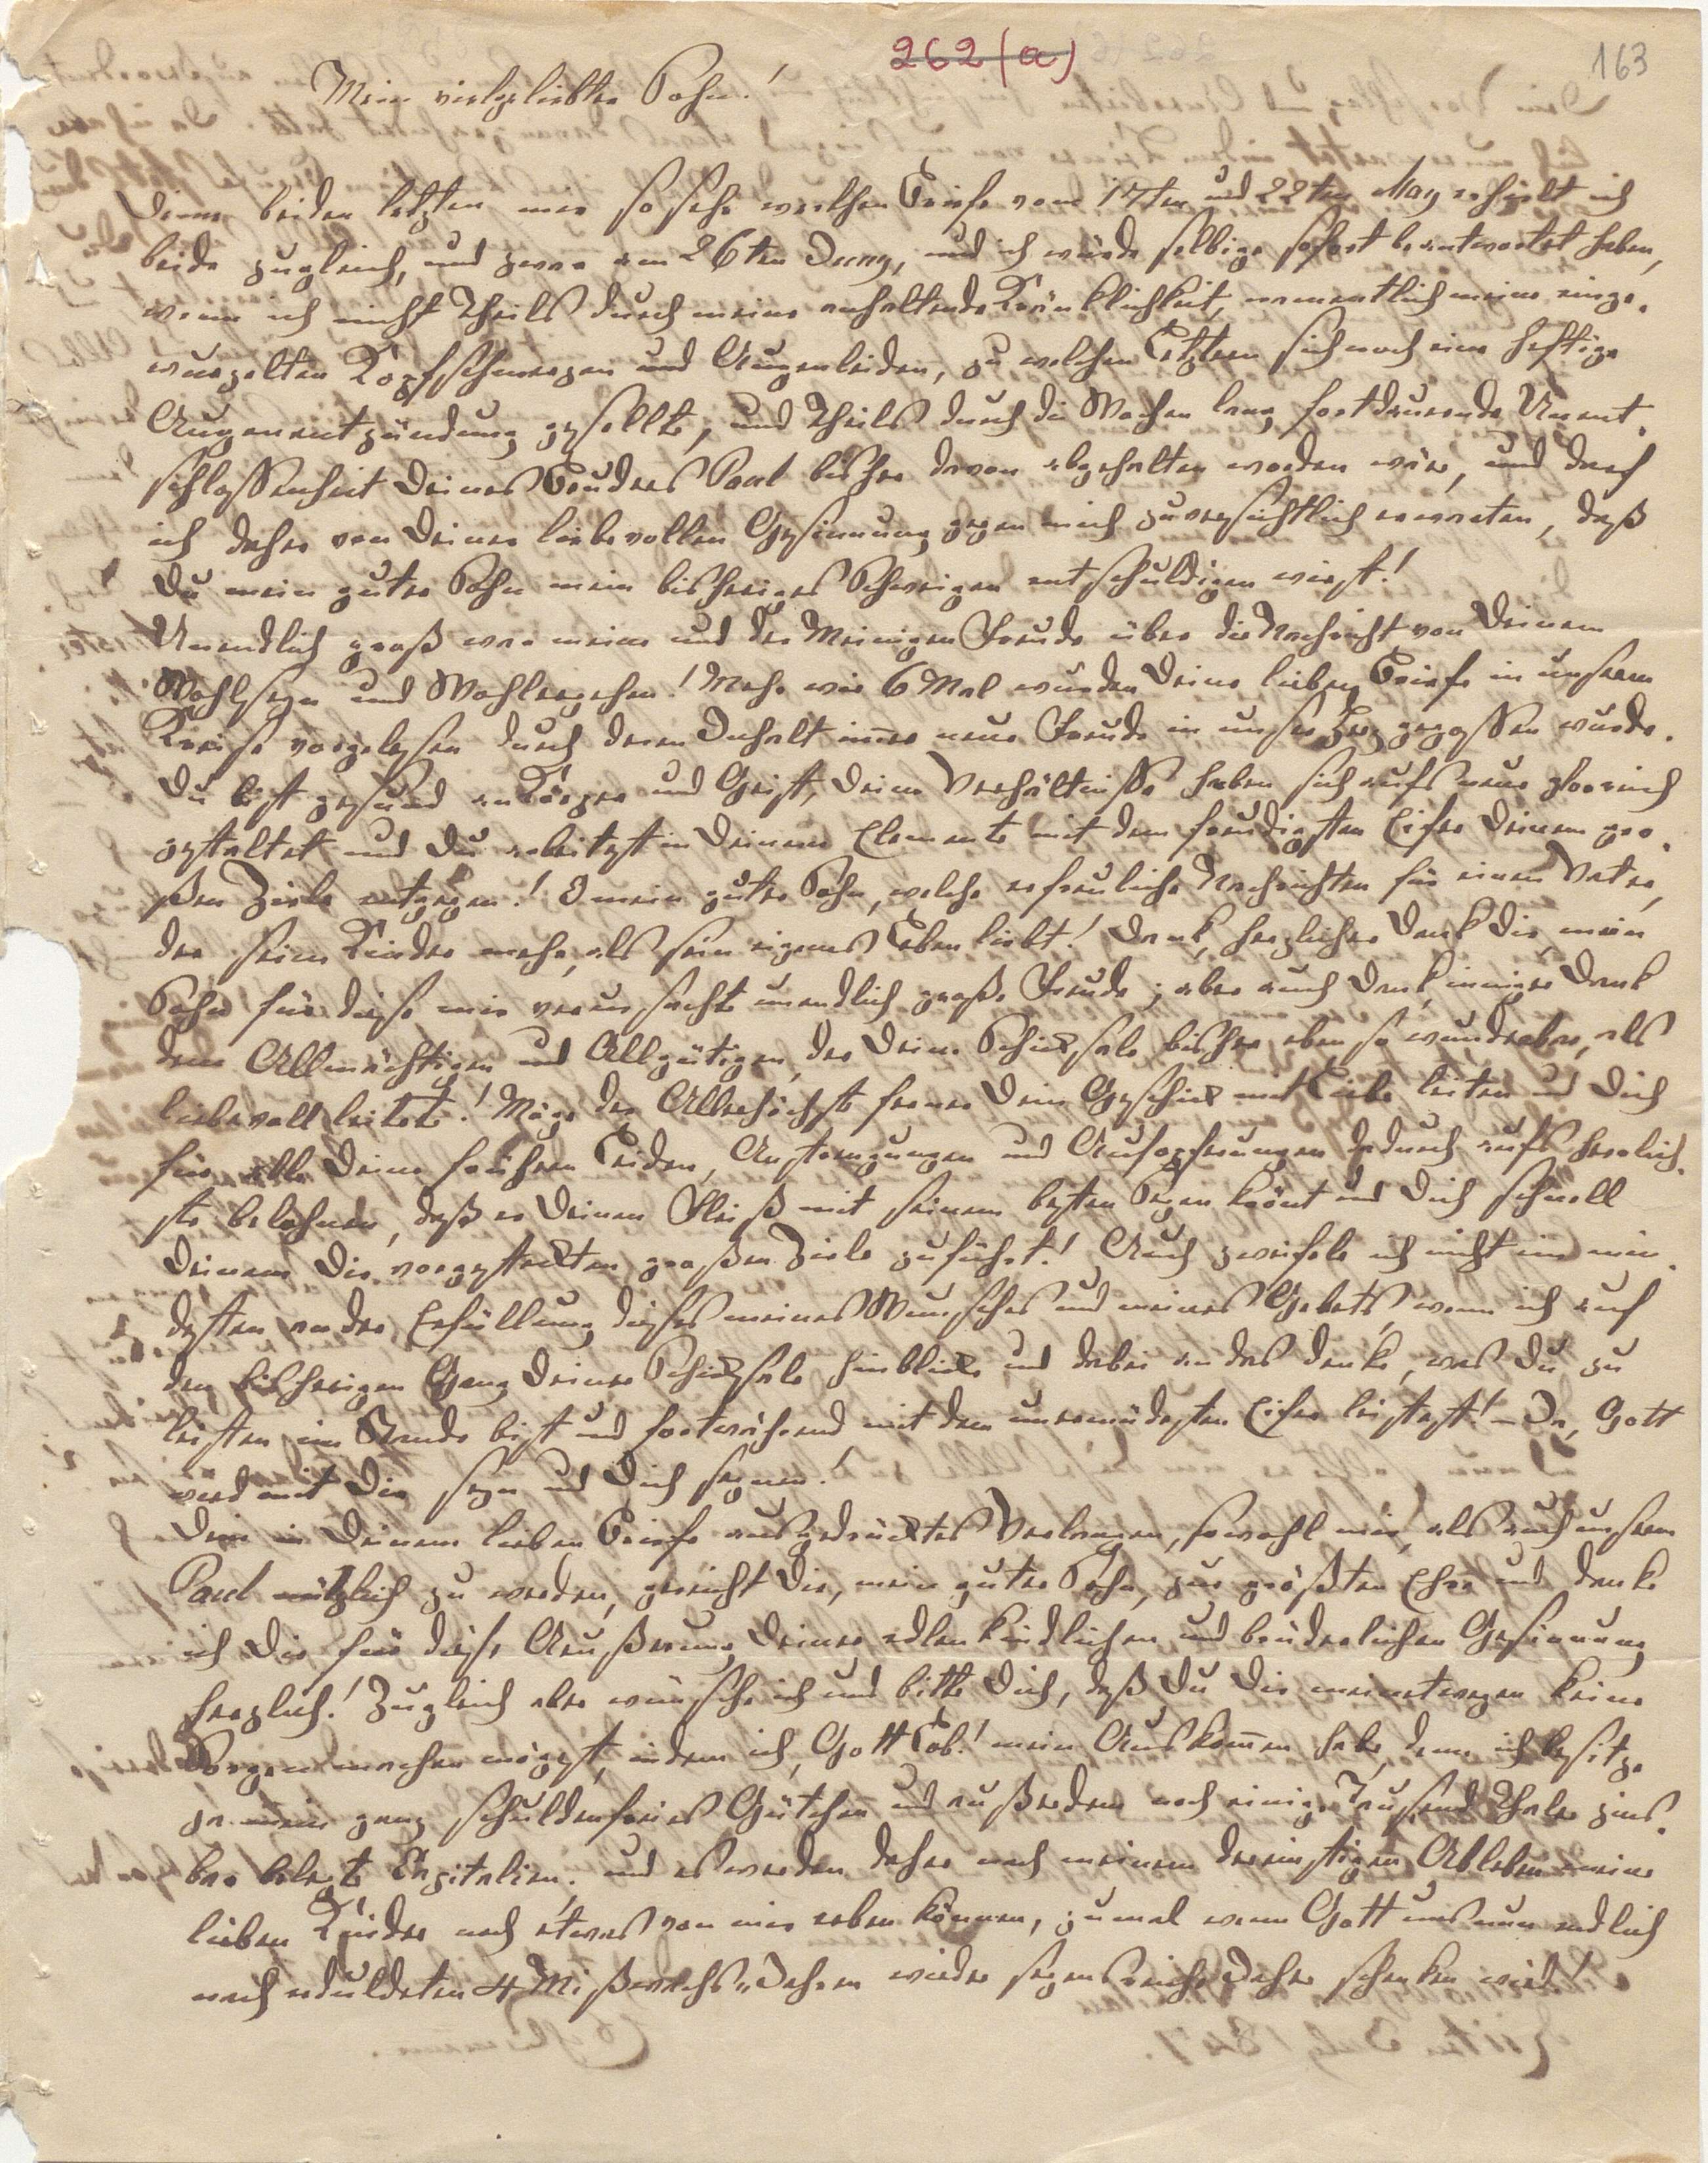 262 (a)
163
Mein vielgeliebter Sohn!
Deine beiden letzten mir so sehr werthen Briefe vom 17ten und 22ten May erhielt ich
beide zugleich, und zwar am 26ten Juny, und ich würde selbige sofort beantwortet haben,
wenn ich nicht theils durch meine anhaltende Kränklichkeit, namentlich meine einge-
wurzelten Kopfschmerzen und Augenleiden, zu welchen Letztern sich noch eine heftige
Augenentzündung gesellte, und theils durch die Wochen lang fortdauernde Unent-
schlossenheit Deines Bruders Paul bisher davon abgehalten worden wäre, und darf
ich daher von Deiner liebevollen Gesinnung gegen mich zuversichtlich erwarten, daß
Du mein guter Sohn mein bisheriges Schweigen entschuldigen wirst!
Unendlich groß war meine und der Meinigen Freude über die Nachricht von Deinem
Wohlseyn und Wohlergehen! Mehr wie 6 Mal wurden Deine lieben Briefe in unserm
Kreise vorgelesen durch deren Inhalt im̅er neue Freude in unser Herz gegossen wurde.
Du bist gesund an Körper und Geist, Deine Verhältnisse haben sich aufs neue glorreich
gestaltet und Du arbeitest in Deinem Elemente mit dem freudigsten Eifer Deinem gro-
ßen Ziele entgegen! O mein guter Sohn, welche erfreuliche Nachrichten für einen Vater,
der seine Kinder mehr, als sein eigenes Leben liebt! Dank, herzlicher Dank Dir, mein
Sohn für diese mir verursachte unendlich große Freude; aber auch Dank, inniger Dank
dem Allmächtigen und Allgütigen, der Deine Schicksale bisher eben so wunderbar, als
liebevoll leitete! Möge der Allerhöchste ferner Dein Geschick mit Liebe leiten und Dich
für alle Deine frühern Leiden, Anstrengungen und Aufopferungen dadurch aufs herrlich-
ste belohnen, daß er Deinen Fleiß mit seinem besten Segen krönt und Dich schnell
Deinem Dir vorgesteckten großen Ziele zuführt! Auch zweifele ich nicht im min-
desten an der Erfüllung dieses meines Wunsches und meines Gebets, wenn ich auf
den bisherigen Gang Deiner Schicksale hinblicke und dabei an das denke, was Du zu
leisten im Stande bist und fortwährend mit dem unermüdesten Eifer leistest! – Ja, Gott
wird mit Dir seyn und Dich segnen!
Dein in Deinem lieben Briefe ausgedrücktes Verlangen, sowohl mir, als auch unserm
Paul nützlich zu werden, gereicht Dir, mein guter Sohn, zur größten Ehre und danke
ich Dir für diese Aeußerung Deiner edlen kindlichen und brüderlichen Gesinnung
herzlich! Zugleich aber wünsche ich und bitte Dich, daß Du Dir meinetwegen keine
Sorgen machen mögest, indem ich, Gott Lob! mein Auskom̅en habe, denn ich besitze
ja mein ganz schuldenfreies Gütchen und außerdem noch einige Tausend Thaler zins-
bar belegte Capitalien: und es werden daher nach meinem dereinstigen Ableben meine
lieben Kinder noch etwas von mir erben können, zumal wenn Gott uns nun endlich
nach erduldeten 4 Mißwachs-Jahren wieder segensreiche Jahre schenken wird!